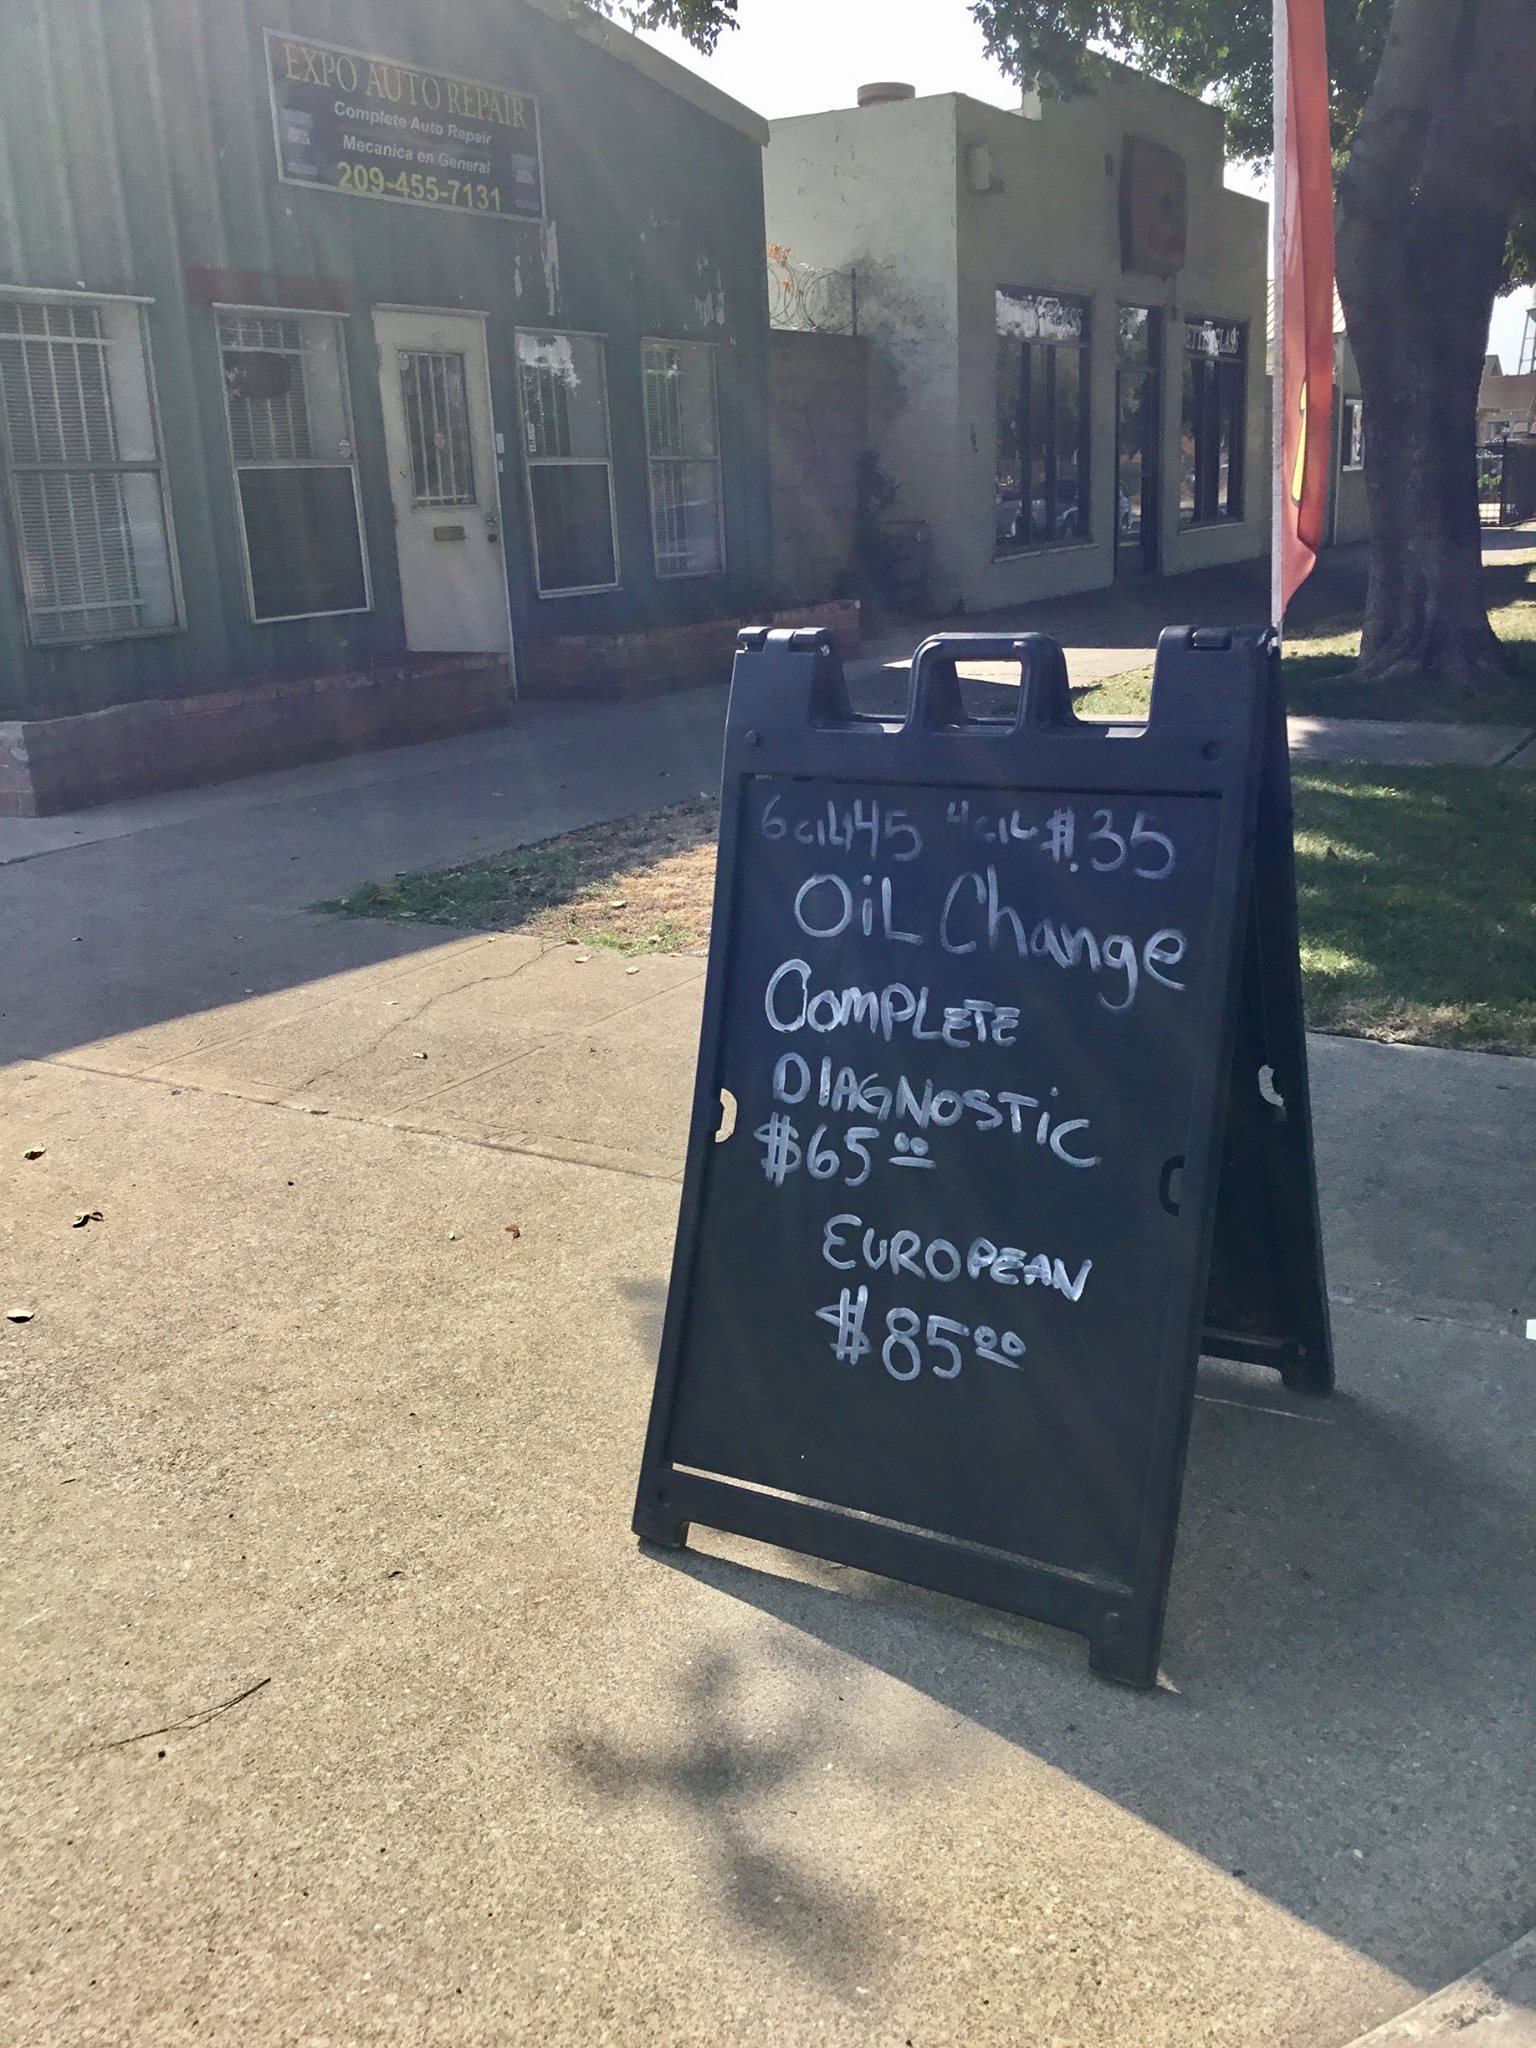 EXPO AUTO REPAIR
Complete Auto Repair
Mecanica en General
209-455-7131
6ciL 45 4ciL $.35
OiL Change
COMPLETE
DIAGNOSTiC
$65.00
EUROPEAN
$85.00